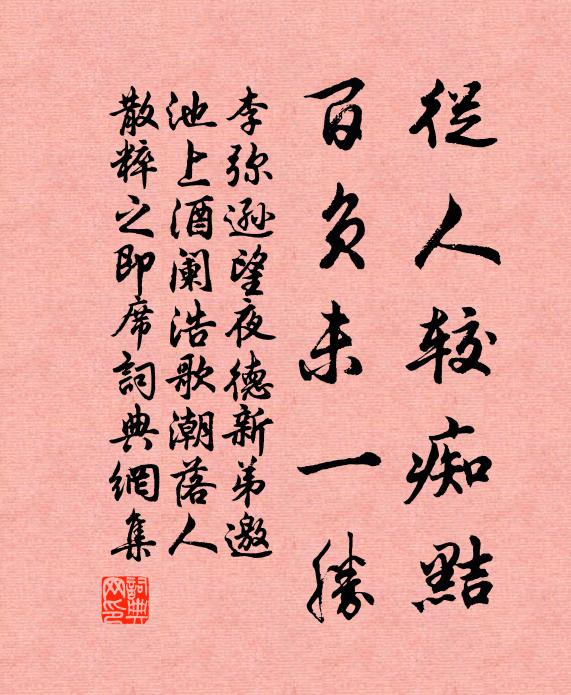 從人較痴黠
百負未一勝
李弥遜望夜德新弟邀
池上酒阑浩歌潮落人
散粹之即席詞典網集
詞典网印